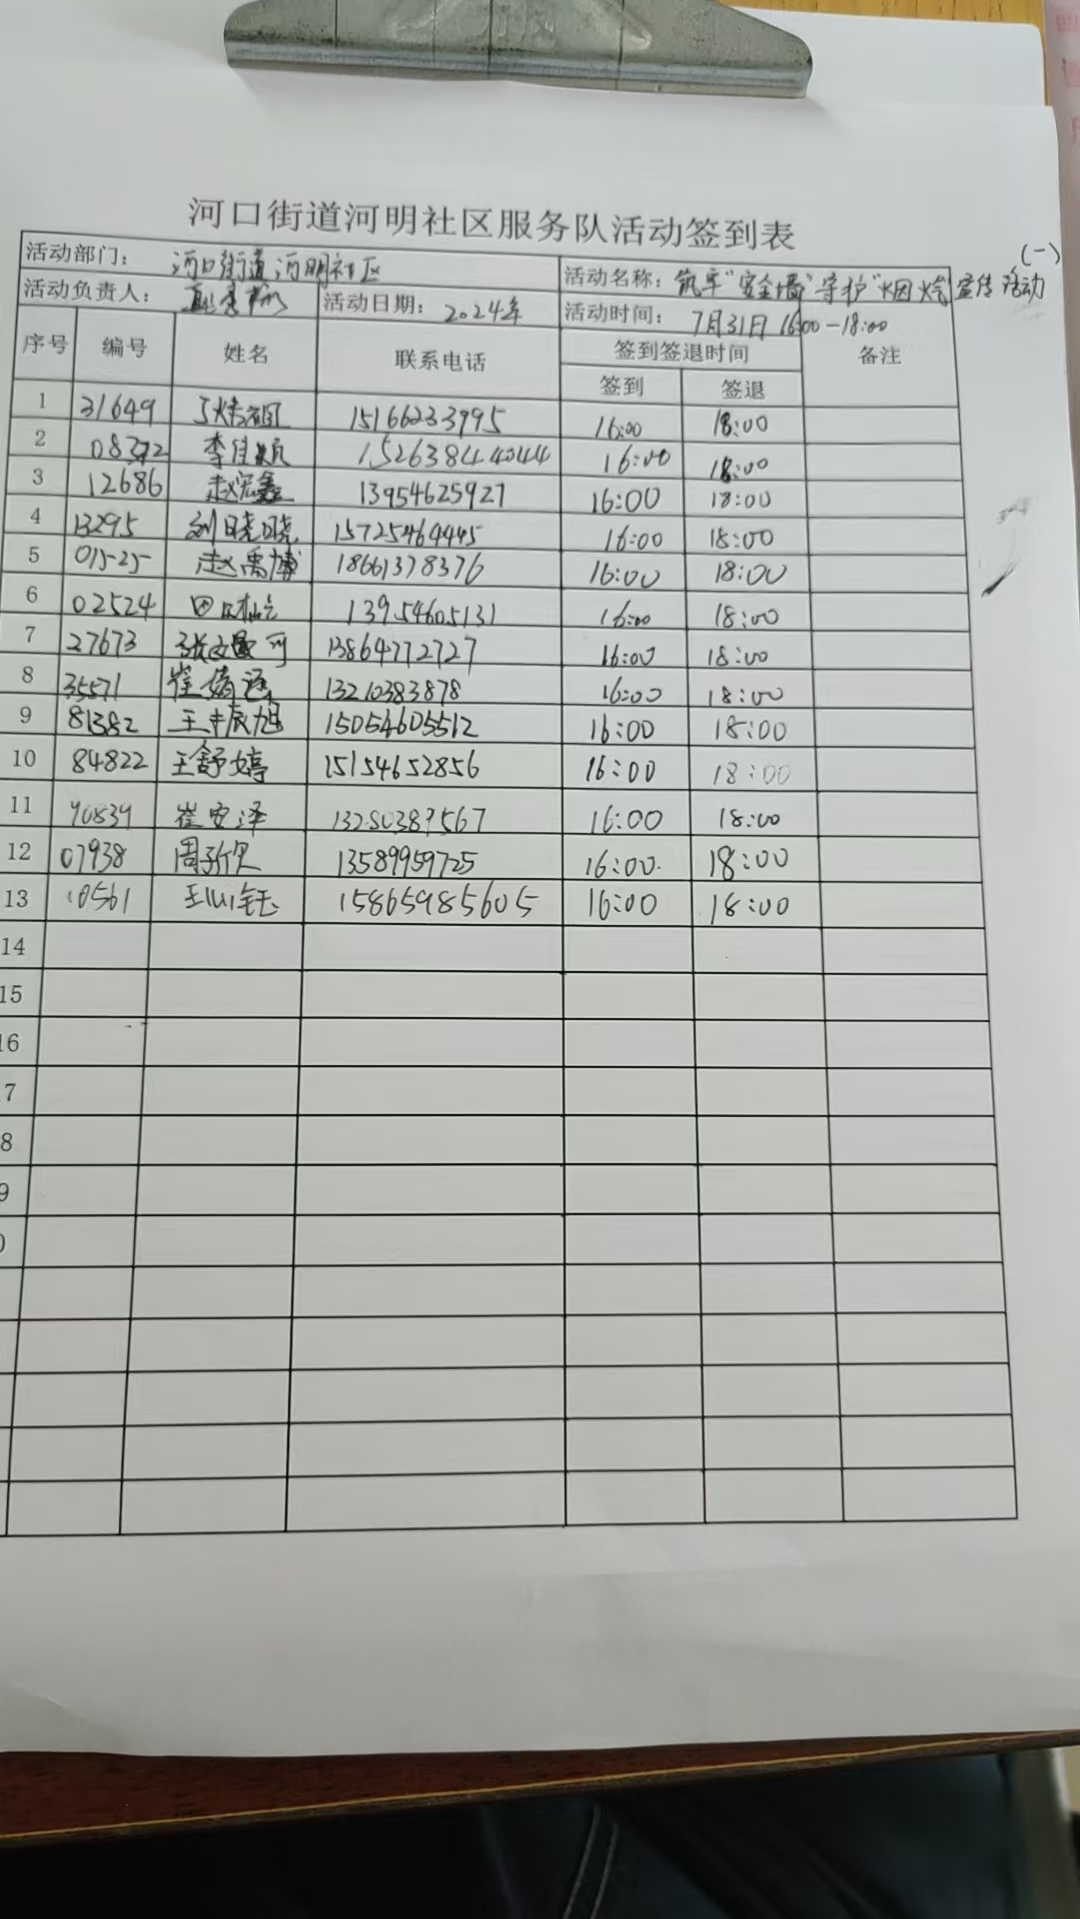 河口街道河明社区服务队活动签到表
(一)
活动部门： 河口街道河明社区 活动名称： 筑牢"安全墙"守护"烟火气"宣传活动
活动负责人： 活动日期： 2024年 活动时间： 7月31日 16:00-18:00
序号 编号 姓名 联系电话 签到签退时间 备注
签到 签退
1 31649 15166233995 16:00 18:00
2 李佳颖 15263844044 16:00 18:00
3 12686 赵宏鑫 13954625927 16:00 18:00
4 13295 刘晓晓 15725464445 16:00 18:00
5 01525 赵禹博 18661378376 16:00 18:00
6 02524 13954605131 16:00 18:00
7 27673 13864772727 16:00 18:00
8 35571 崔婧涵 13210383878 16:00 18:00
9 81382 王丰辰旭 15054605512 16:00 18:00
10 84822 王舒婷 15154652856 16:00 18:00
11 90839 崔安泽 13280389567 16:00 18:00
12 07938 周子欣 13589959725 16:00 18:00
13 10561 15865985605 16:00 18:00
14
15
16
7
8
9
0